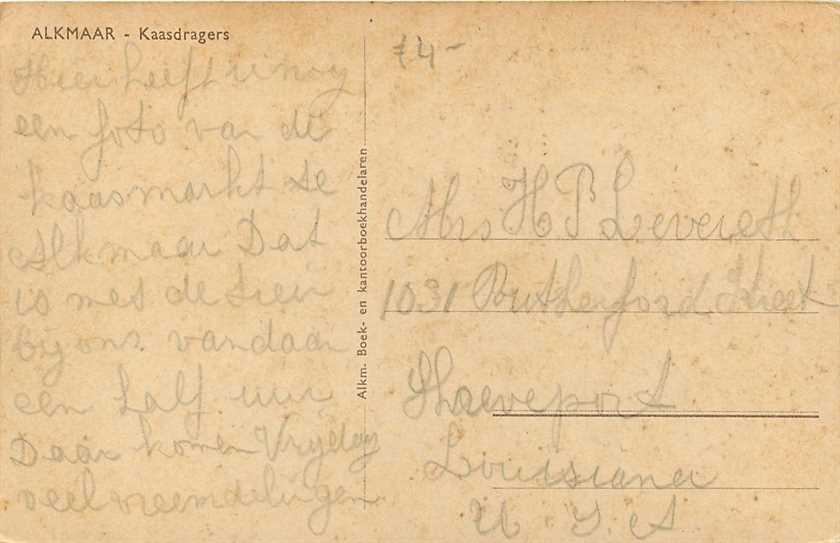 ALKMAAR - Kaasdragers
Hier heeft u nog
een foto van de
kaasmarkt te
Alkmaar Dat
is met de trein
bij ons vandaan
een half uur
Daar komen Vrydag
veel vreemdelingen
Alkm. Boek- en kantoorboekhandelaren
4-
Mrs H P Leverett
1031 Rutherford Street
Shreveport
Louisiana
U.S.A